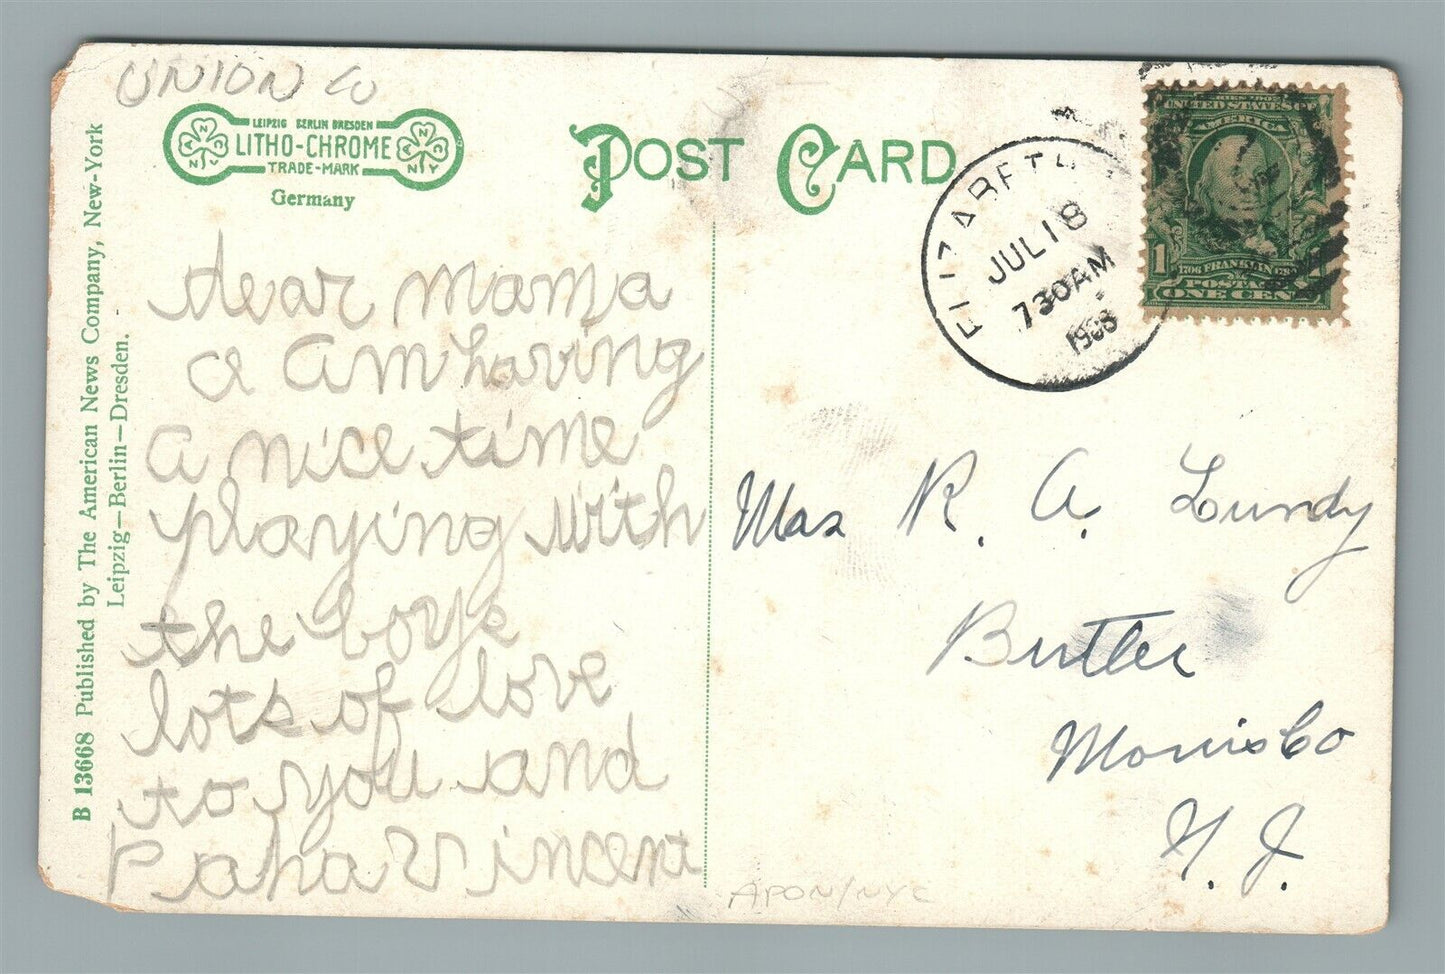 UNION Co
LEIPZIG BERLIN DRESDEN
LITHO-CHROME
TRADE-MARK
Germany
POST CARD
B 13668 Published by The American News Company, New-York
Leipzig—Berlin—Dresden.
ELIZABETH
JUL 18
730AM
1908
SERIES 1902
UNITED STATES OF
AMERICA
1
1706 FRANKLIN
POSTAGE
ONE CENT
dear mama
a am having
a nice time
playing with
the boys
lots of love
to you and
Papa Vincent
Mrs R. A. Lundy
Butler
Morris Co
N. J.
APON/NYC